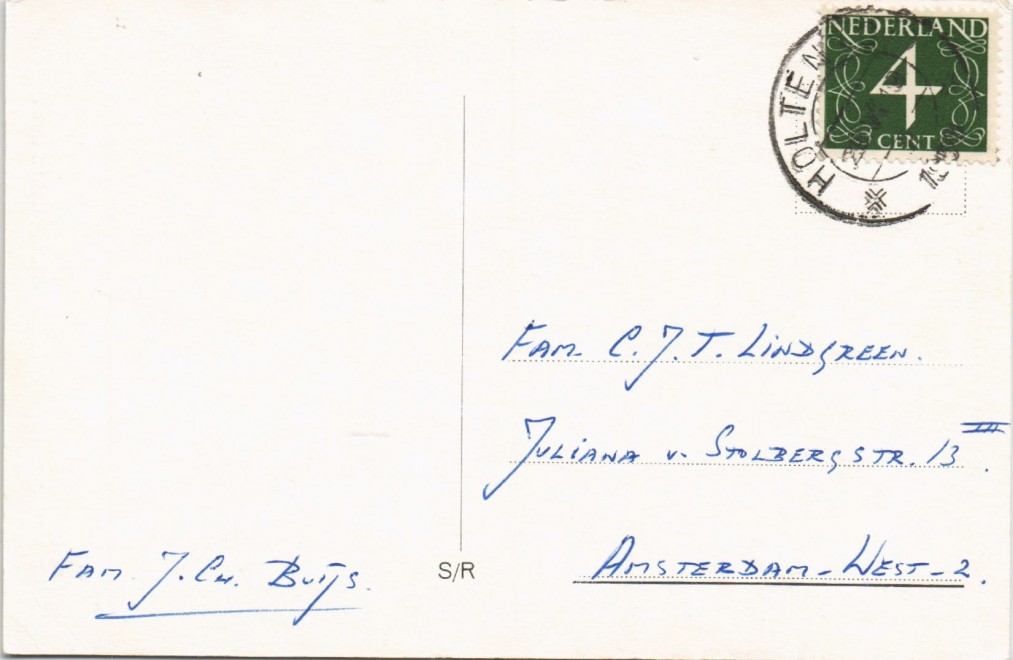 NEDERLAND
4
CENT
HOLTEN
Fam. C. J. T. Lindgreen.
Juliana v. Stolbergstr. 13 III.
Amsterdam-West-2.
Fam. J. Ch. Buijs.
S/R